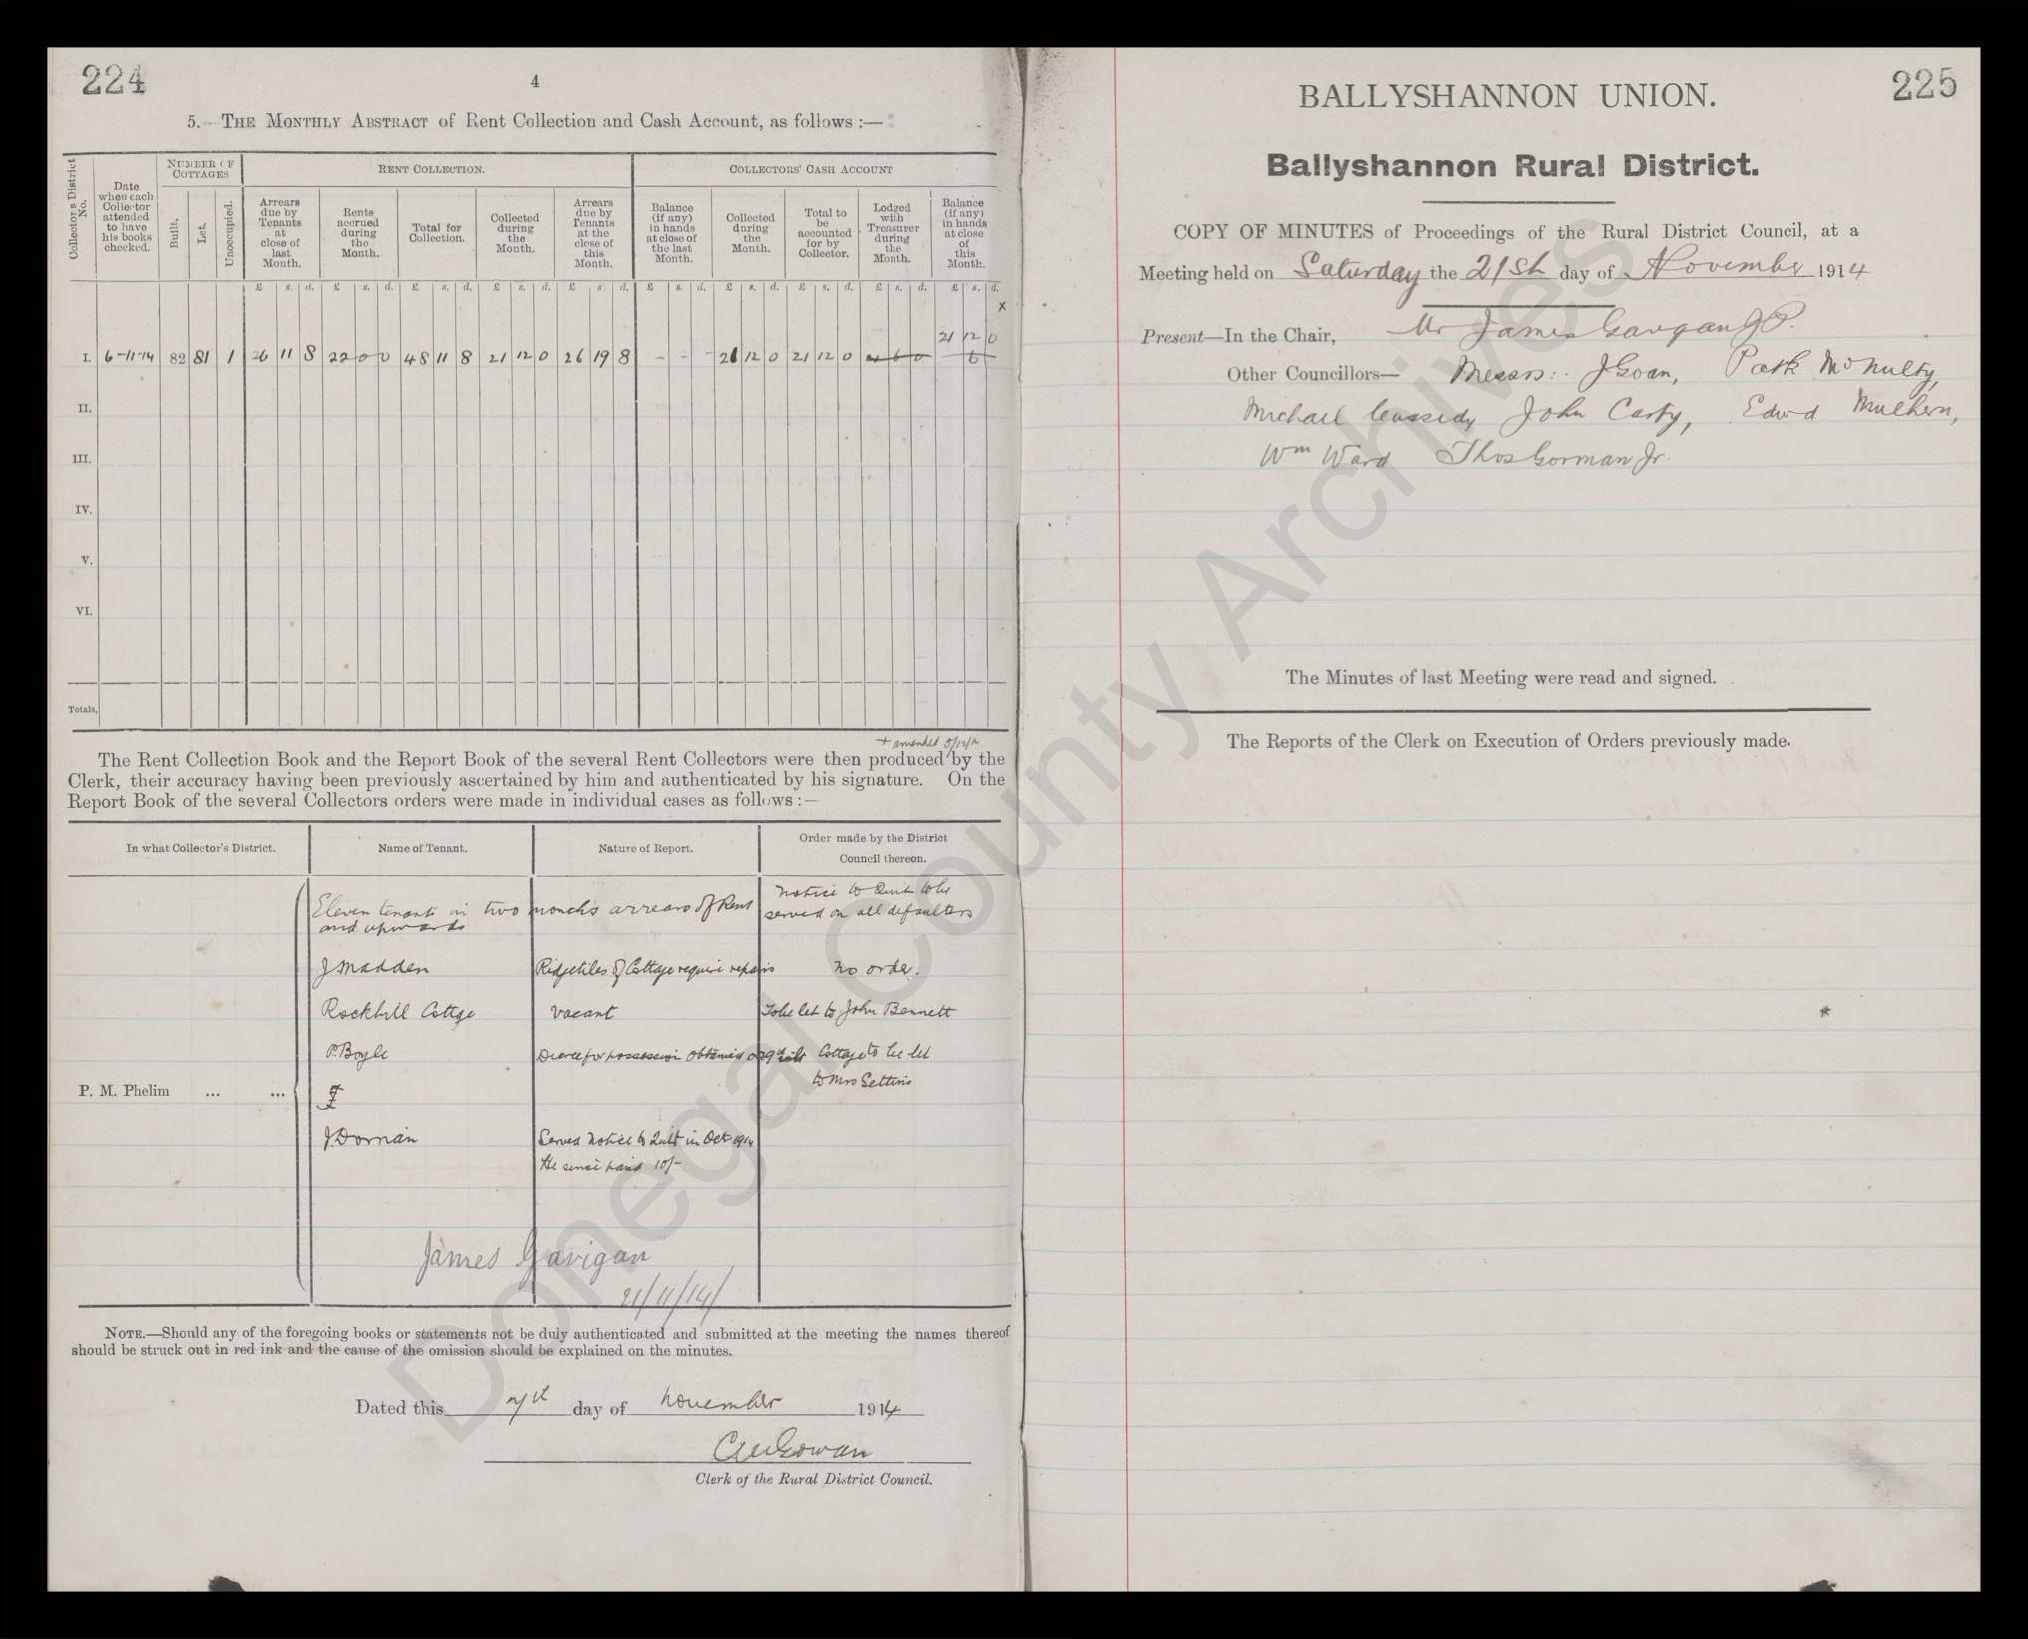 224
4
5. THE MONTHLY ABSTRACT of Rent Collection and Cash Account, as follows :—
Collector's District No.
Date when each Collector attended to have his books checked.
NUMBER OF COTTAGES
Built.
Let.
Unoccupied.
RENT COLLECTION.
Arrears due by Tenants at close of last Month.
Rents accrued during the Month.
Total for Collection.
Collected during the Month.
Arrears due by Tenants at the close of this Month.
COLLECTORS' CASH ACCOUNT
Balance (if any) in hands at close of the last Month.
Collected during the Month.
Total to be accounted for by Collector.
Lodged with Treasurer during the Month.
Balance (if any) in hands at close of this Month.
£ s. d. £ s. d. £ s. d. £ s. d. £ s. d. £ s. d. £ s. d. £ s. d. £ s. d. £ s. d.
x
21 12 0
I. 6-11-14 82 81 1 26 11 8 22 0 0 48 11 8 21 12 0 26 19 8 - - - 21 12 0 21 12 0
II.
III.
IV.
V.
VI.
Totals,
+ amended
The Rent Collection Book and the Report Book of the several Rent Collectors were then produced by the
Clerk, their accuracy having been previously ascertained by him and authenticated by his signature. On the
Report Book of the several Collectors orders were made in individual cases as follows :—
In what Collector's District. Name of Tenant. Nature of Report. Order made by the District Council thereon.
Eleven tenants in two months arrears of Rent and upwards
Notice to Quit to be served on all defaulters
J Madden Ridgetiles of Cottage require repairs No order.
Rockhill Cottge vacant To be let to John Bennett
P. Boyle Decree for possession obtained on 9th ult Cottage to be let
to Mrs
P. M. Phelim ... ...
J. Dornan Served Notice to Quit in Oct 1914
He since paid 10/-
James Gavigan
21/11/14
NOTE.—Should any of the foregoing books or statements not be duly authenticated and submitted at the meeting the names thereof
should be struck out in red ink and the cause of the omission should be explained on the minutes.
Dated this 7th day of November 1914
Clerk of the Rural District Council.
225
BALLYSHANNON UNION.
Ballyshannon Rural District.
COPY OF MINUTES of Proceedings of the Rural District Council, at a
Meeting held on Saturday the 21st day of November 1914
Present—In the Chair, Mr James Gavigan J.P.
Other Councillors— Messrs: J Goan, Patk McNulty,
Michael Cassidy John Carty, Edwd Mulhern,
Wm Ward Thos Gorman Jr.
The Minutes of last Meeting were read and signed.
The Reports of the Clerk on Execution of Orders previously made.
Donegal County Archives